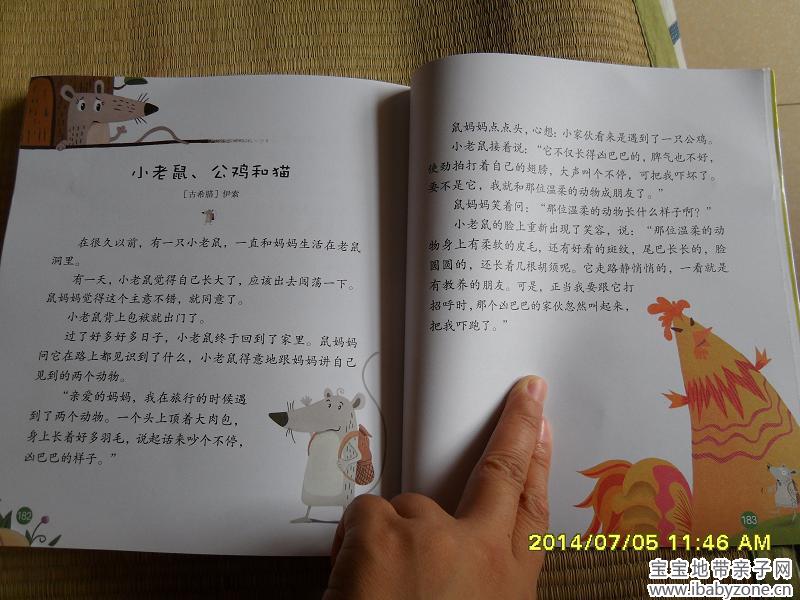 小老鼠、公鸡和猫
［古希腊］伊索
在很久以前，有一只小老鼠，一直和妈妈生活在老鼠
洞里。
有一天，小老鼠觉得自己长大了，应该出去闯荡一下。
鼠妈妈觉得这个主意不错，就同意了。
小老鼠背上包袱就出门了。
过了好多好多日子，小老鼠终于回到了家里。鼠妈妈
问它在路上都见识到了什么，小老鼠得意地跟妈妈讲自己
见到的两个动物。
“亲爱的妈妈，我在旅行的时候遇
到了两个动物。一个头上顶着大肉包，
身上长着好多羽毛，说起话来吵个不停，
凶巴巴的样子。”
182
鼠妈妈点点头，心想：小家伙看来是遇到了一只公鸡。
小老鼠接着说：“它不仅长得凶巴巴的，脾气也不好，
使劲拍打着自己的翅膀，大声叫个不停，可把我吓坏了。
要不是它，我就和那位温柔的动物成朋友了。”
鼠妈妈笑着问：“那位温柔的动物长什么样子啊？”
小老鼠的脸上重新出现了笑容，说：“那位温柔的动
物身上有柔软的皮毛，还有好看的斑纹，尾巴长长的，脸
圆圆的，还长着几根胡须呢。它走路静悄悄的，一看就是
有教养的朋友。可是，正当我要跟它打
招呼时，那个凶巴巴的家伙忽然叫起来，
把我吓跑了。”
183
2014/07/05 11:46 AM
宝宝地带亲子网
www.ibabyzone.cn